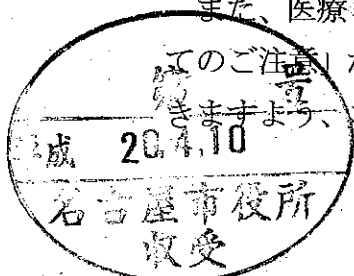 また、医療
てのご注意」
第 号
きますよう、
平成 20.4.10
名古屋市役所
収受